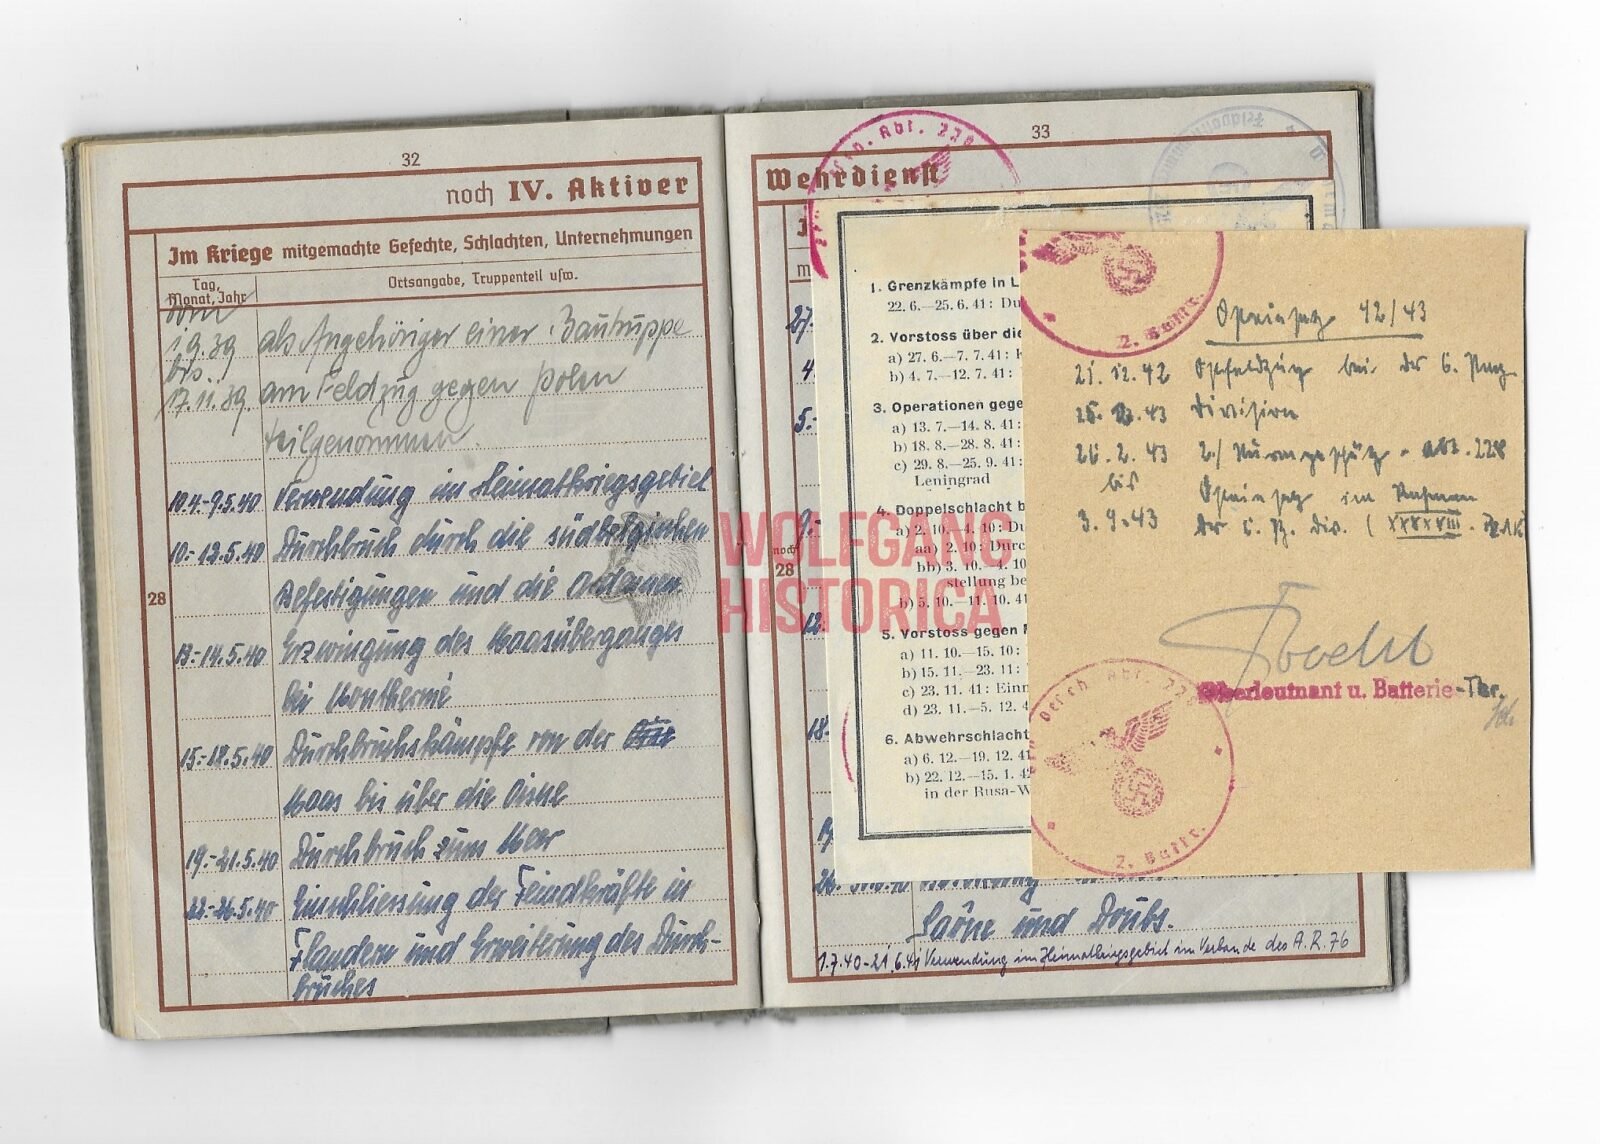 32
noch IV. Aktiver
Im Kriege mitgemachte Gefechte, Schlachten, Unternehmungen
Tag, Monat, Jahr
Ortsangabe, Truppenteil usw.
28
vom
1.9.39 als Angehöriger einer Bautruppe
bis
17.11.39. am Feldzug gegen Polen
teilgenommen.
10.4.-9.5.40 Verwendung im Heimatkriegsgebiet
10.-12.5.40 Durchbruch durch die südbelgischen
Befestigungen und die Ardennen
13.-14.5.40 Erzwingung des Maasüberganges
bei Monthermé
15.-18.5.40 Durchbruchskämpfe von der
Maas bis über die Oise
19.-21.5.40 Durchbruch zum Meer
22.-26.5.40 Einschliessung der Feindkräfte in
Flandern und Erweiterung des Durch-
bruches
33
Wehrdienst
noch
28
27.
4.
5.-
9.-
12.
18.-
Saône und Doubs.
1.7.40-21.6.41 Verwendung im Heimatkriegsgebiet im Verbande des A.R. 76
1. Grenzkämpfe in L
22. 6.—25. 6. 41: Du
2. Vorstoss über die
a) 27. 6.—7. 7. 41:
b) 4. 7.—12. 7. 41:
3. Operationen gege
a) 13. 7.—14. 8. 41:
b) 18. 8.—28. 8. 41:
c) 29. 8.—25. 9. 41:
Leningrad
4. Doppelschlacht b
a) 2. 10.—4. 10: Du
aa) 2. 10: Durc
bb) 3. 10.—4. 10
stellung be
b) 5. 10.—11. 10. 41
5. Vorstoss gegen
a) 11. 10.—15. 10:
b) 15. 11.—23. 11:
c) 23. 11. 41: Einn
d) 23. 11.—5. 12. 4
6. Abwehrschlacht
a) 6. 12.—19. 12. 41
b) 22. 12.—15. 1. 42
in der Rusa-W
Abt. 228
2. Battr.
Osteinsatz 42/43
21.12.42 Ostfeldzug bei der 6. Panz.
Division
26.2.43 2./Sturmgeschütz-Abt. 228
bis Osteinsatz im Rahmen
3.9.43 der 6. Pz. Div. (XXXXVIII.
Oberleutnant u. Batterie-
Gesch. Abt. 22
2. Battr.
WOLFGANG
HISTORICA